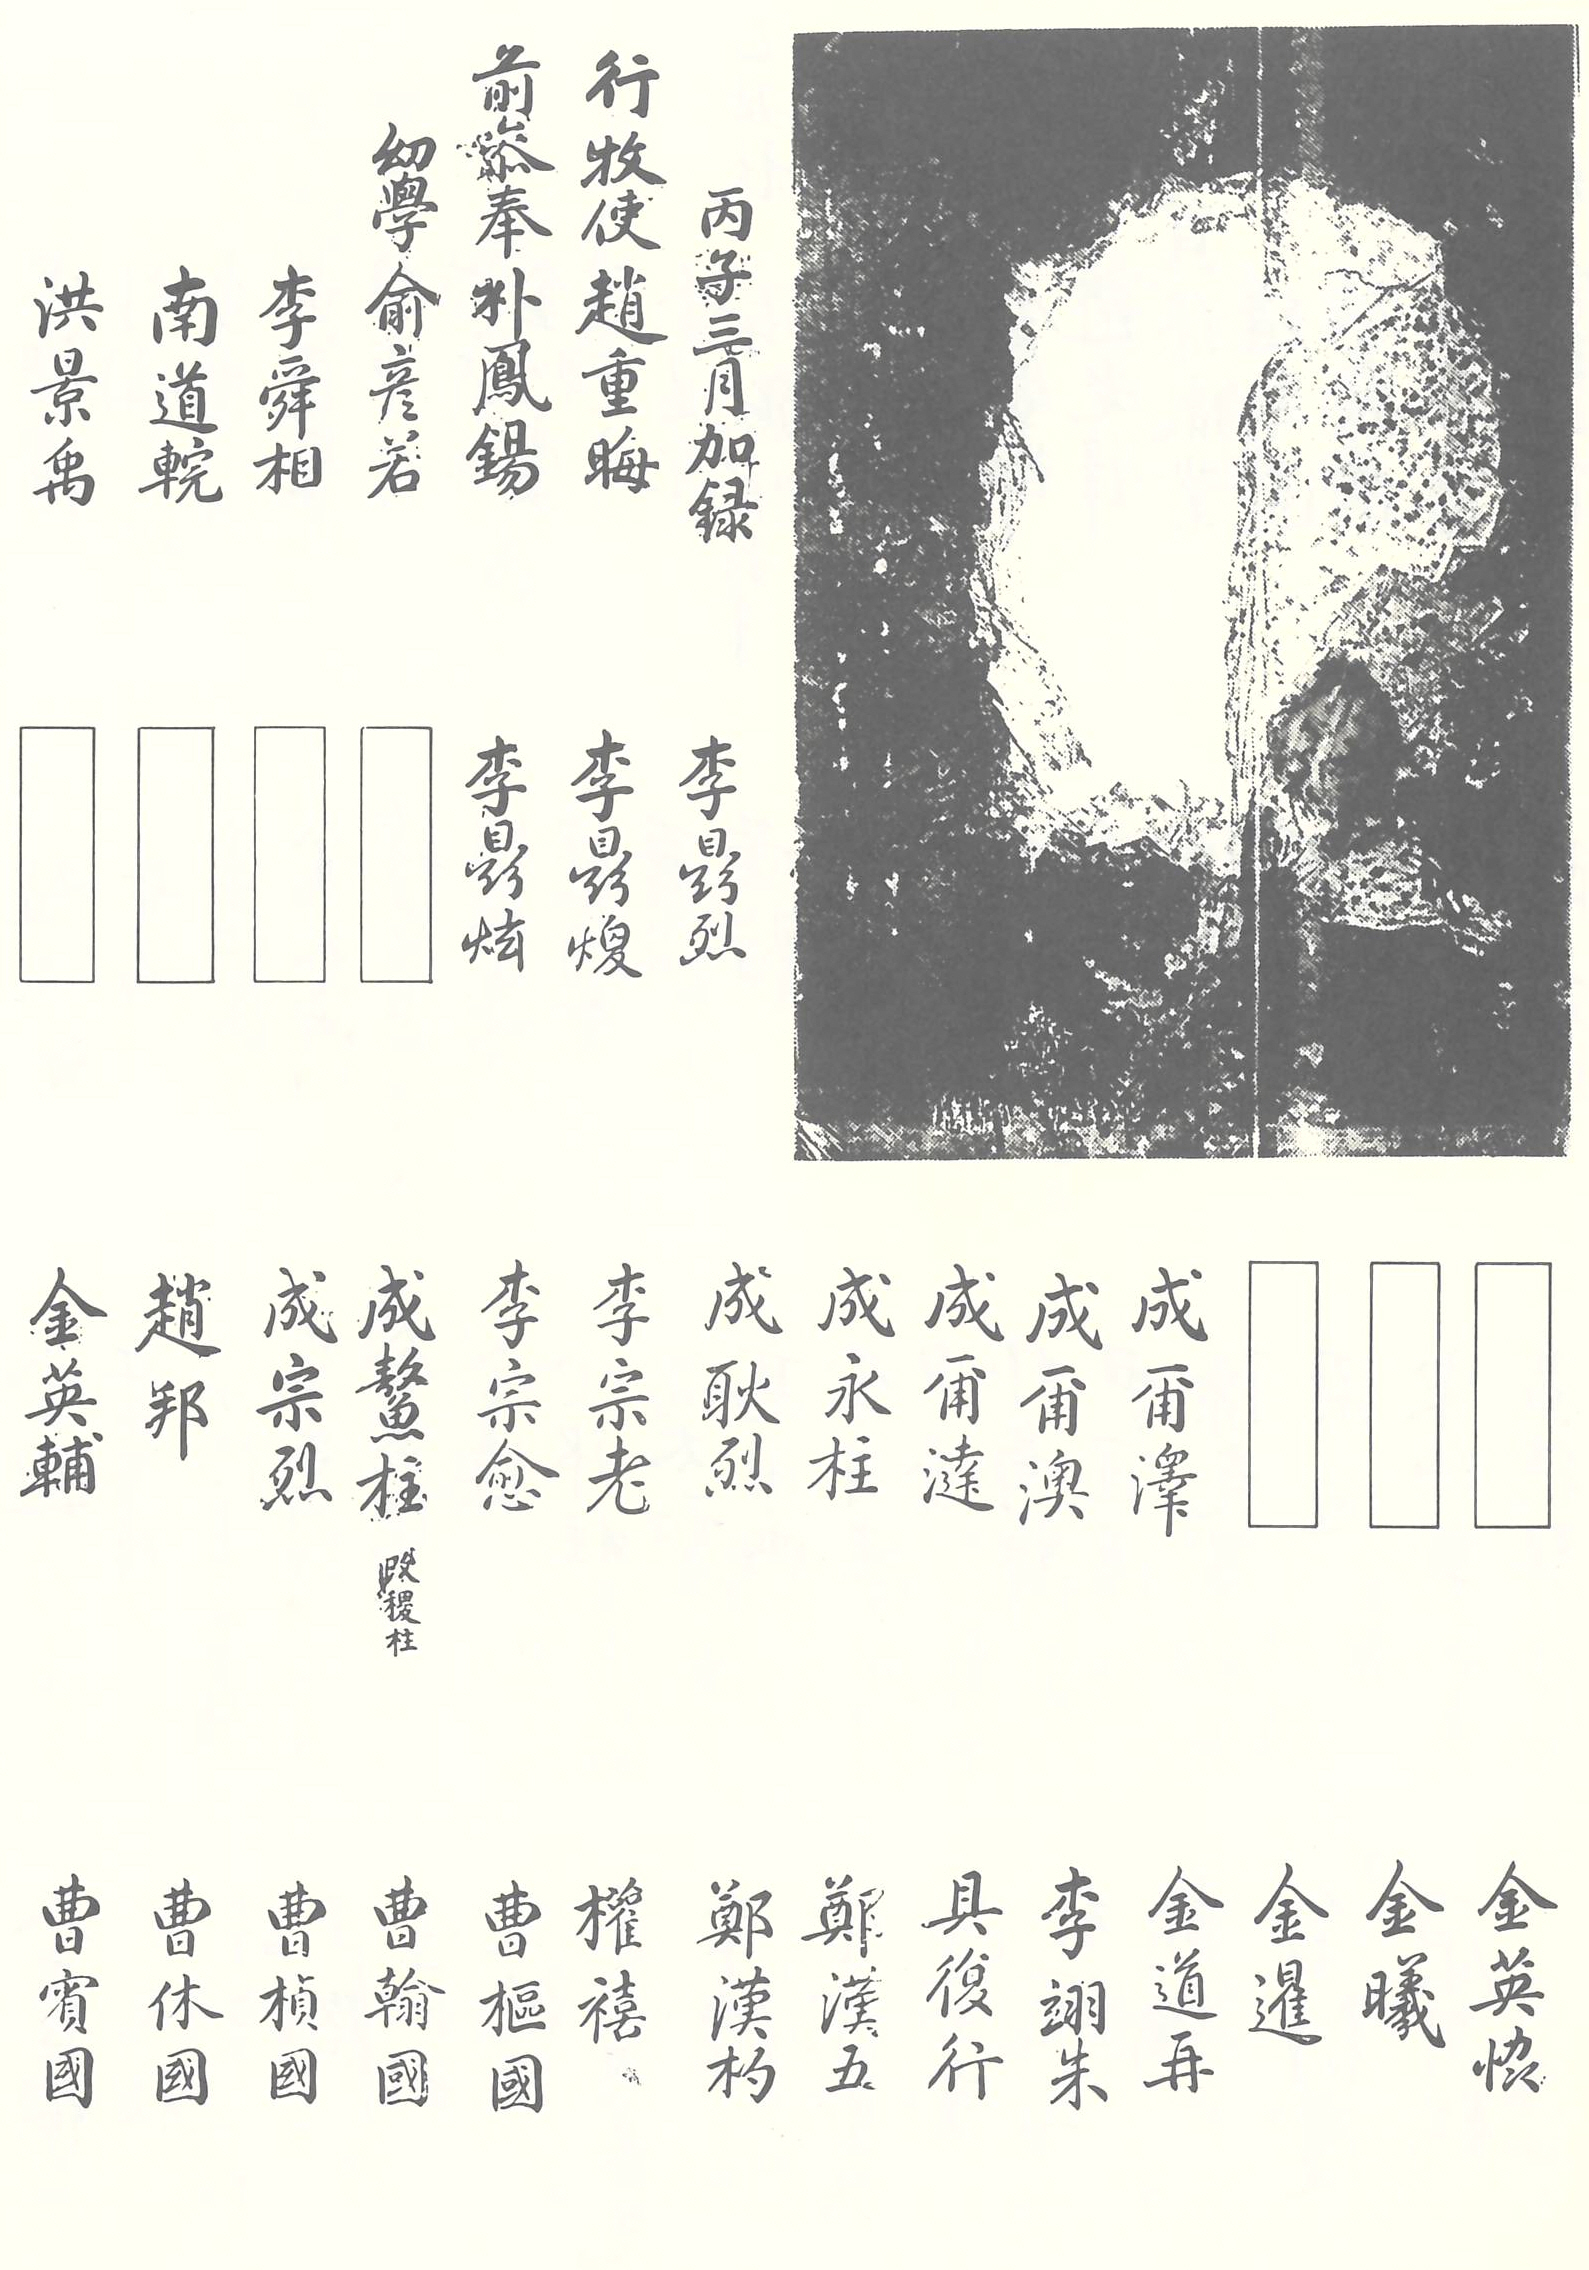 丙子三月加録
行牧使趙重晦
前叅奉朴鳳錫
幼學俞彦若
李舜相
南道輐
洪景禹
李㬎烈
李㬎熳
李㬎炫
成爾澤
成爾澳
成爾澾
成永柱
成耿烈
李宗老
李宗愈
成鰲柱
改稷柱
成宗烈
趙邦
金英輔
金英
金曦
金暹
金道再
李翊朱
具復行
鄭漢五
鄭漢杓
權禧
曹樞國
曹翰國
曹楨國
曹休國
曹賓國